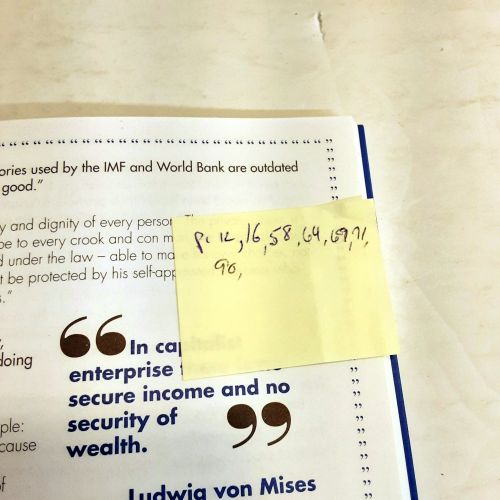 ories used by the IMF and World Bank are outdated
good.”
y and dignity of every person
be to every crook and con m
d under the law – able to ma
t be protected by his self-app
s.”
p. 12, 16, 58, 64, 69, 71,
90,
doing
“ In cap
enterprise
secure income and no
security of
wealth. ”
ple:
cause
of
Ludwig von Mises